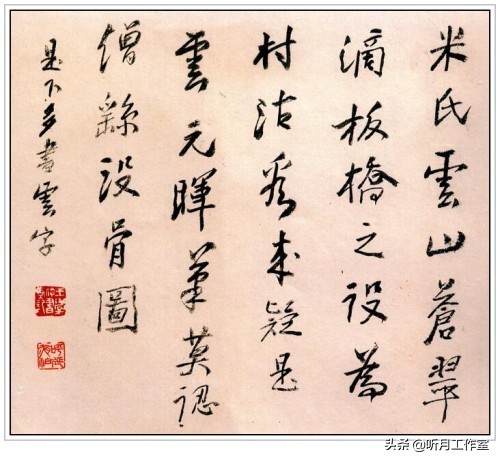 米氏雲山蒼翠
滴板橋之設為
村沽看來疑是
雲元暉筆莫認
僧繇沒骨圖
是下多書雲字
头条 @听月工作室